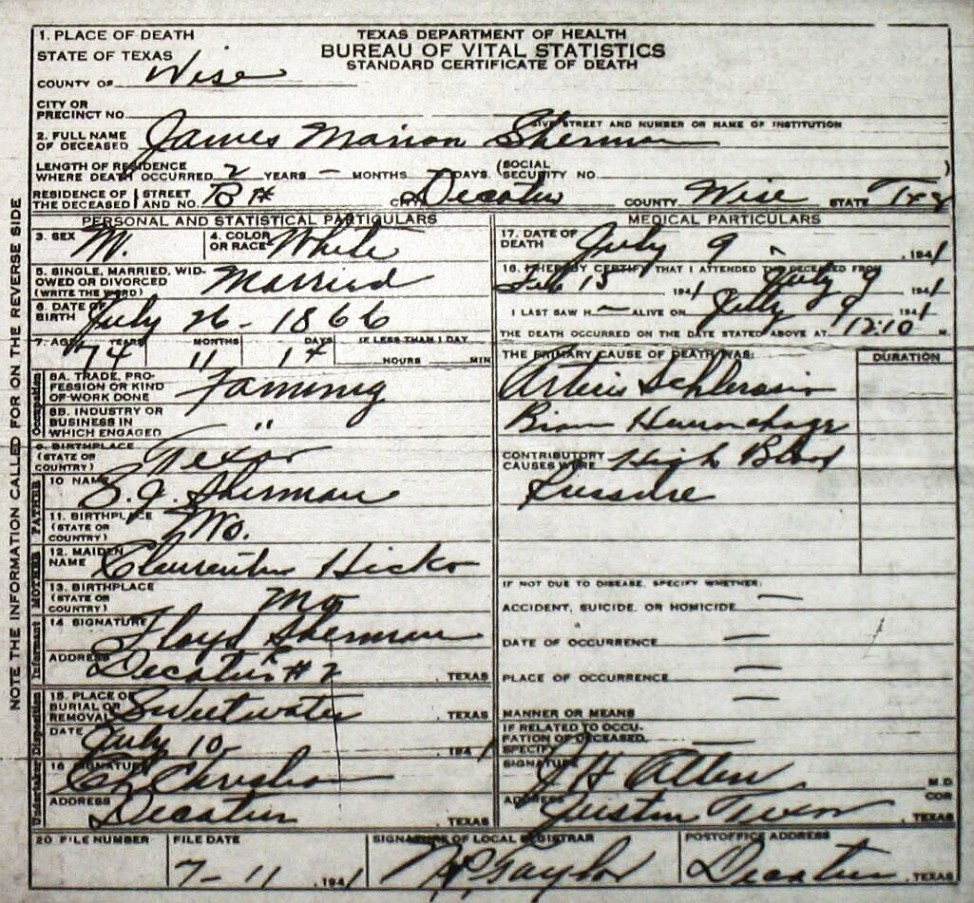 NOTE THE INFORMATION CALLED FOR ON THE REVERSE SIDE
TEXAS DEPARTMENT OF HEALTH
BUREAU OF VITAL STATISTICS
STANDARD CERTIFICATE OF DEATH
1. PLACE OF DEATH
STATE OF TEXAS
COUNTY OF Wise
CITY OR
PRECINCT NO.
GIVE STREET AND NUMBER OR NAME OF INSTITUTION
2. FULL NAME
OF DECEASED James Marion Sherman
LENGTH OF RESIDENCE
WHERE DEATH OCCURRED 2 YEARS - MONTHS - DAYS (SOCIAL
SECURITY NO.
RESIDENCE OF STREET
THE DECEASED AND NO. Decatur COUNTY Wise STATE
PERSONAL AND STATISTICAL PARTICULARS
3. SEX M. 4. COLOR
OR RACE White
5. SINGLE, MARRIED, WID-
OWED OR DIVORCED
(WRITE THE WORD) Married
6. DATE OF
BIRTH July 26 - 1866
7. AGE YEARS MONTHS DAYS IF LESS THAN 1 DAY
74 11 14 HOURS MIN
Occupation
8A. TRADE, PRO-
FESSION OR KIND
OF WORK DONE Farming
8B. INDUSTRY OR
BUSINESS IN
WHICH ENGAGED "
9. BIRTHPLACE
(STATE OR
COUNTRY) Texas
FATHER
10 NAME S. J. Sherman
11. BIRTHPLACE
(STATE OR
COUNTRY) Mo.
MOTHER
12. MAIDEN
NAME Hicks
13. BIRTHPLACE
(STATE OR
COUNTRY) Mo
Informant
14 SIGNATURE Floyd Sherman
ADDRESS Decatur # 2 , TEXAS
Undertaker Disposition
15. PLACE OF
BURIAL OR
REMOVAL Sweetwater , TEXAS
DATE July 10 - , 1941
16 SIGNATURE
ADDRESS Decatur , TEXAS
MEDICAL PARTICULARS
17. DATE OF
DEATH July 9 - , 1941
18. I HEREBY CERTIFY THAT I ATTENDED THE DECEASED FROM
Feb 15 1941 July 9 , 1941
I LAST SAW H ALIVE ON July 9 1941
THE DEATH OCCURRED ON THE DATE STATED ABOVE AT 12:10 M.
THE PRIMARY CAUSE OF DEATH WAS: DURATION
Hemorhage
CONTRIBUTORY
CAUSES WERE High Blood
Pressure
IF NOT DUE TO DISEASE, SPECIFY WHETHER:
ACCIDENT, SUICIDE, OR HOMICIDE —
DATE OF OCCURRENCE —
PLACE OF OCCURRENCE —
MANNER OR MEANS —
IF RELATED TO OCCU-
PATION OF DECEASED,
SPECIFY —
SIGNATURE J H Allen M.D
ADDRESS Justin Texas COR
, TEXAS
20 FILE NUMBER FILE DATE SIGNATURE OF LOCAL REGISTRAR POSTOFFICE ADDRESS
7 - 11 , 1941 Gaylor Decatur , TEXAS